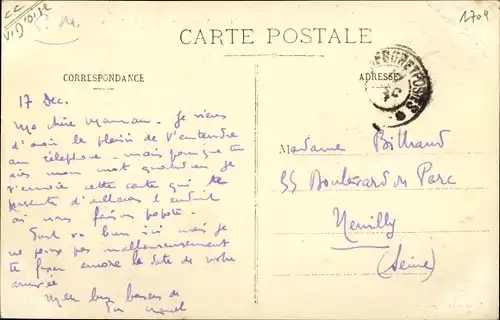 1704
CARTE POSTALE
CORRESPONDANCE
ADRESSE
TRESOR ET POSTES
17 Dec.
Ma chère Maman. Je viens
d'avoir le plaisir de t'entendre
au téléphone - mais pour que tu
aies mon mot quotidien je
t'envoie cette carte qui te
présente d'ailleurs l'endroit
où nous faisons popote.
Tout va bien ici mais je
ne peux pas malheureusement
te fixer encore la date de votre
arrivée
bons baisers de
ton
Madame
55 Boulevard du Parc
Neuilly
(Seine)